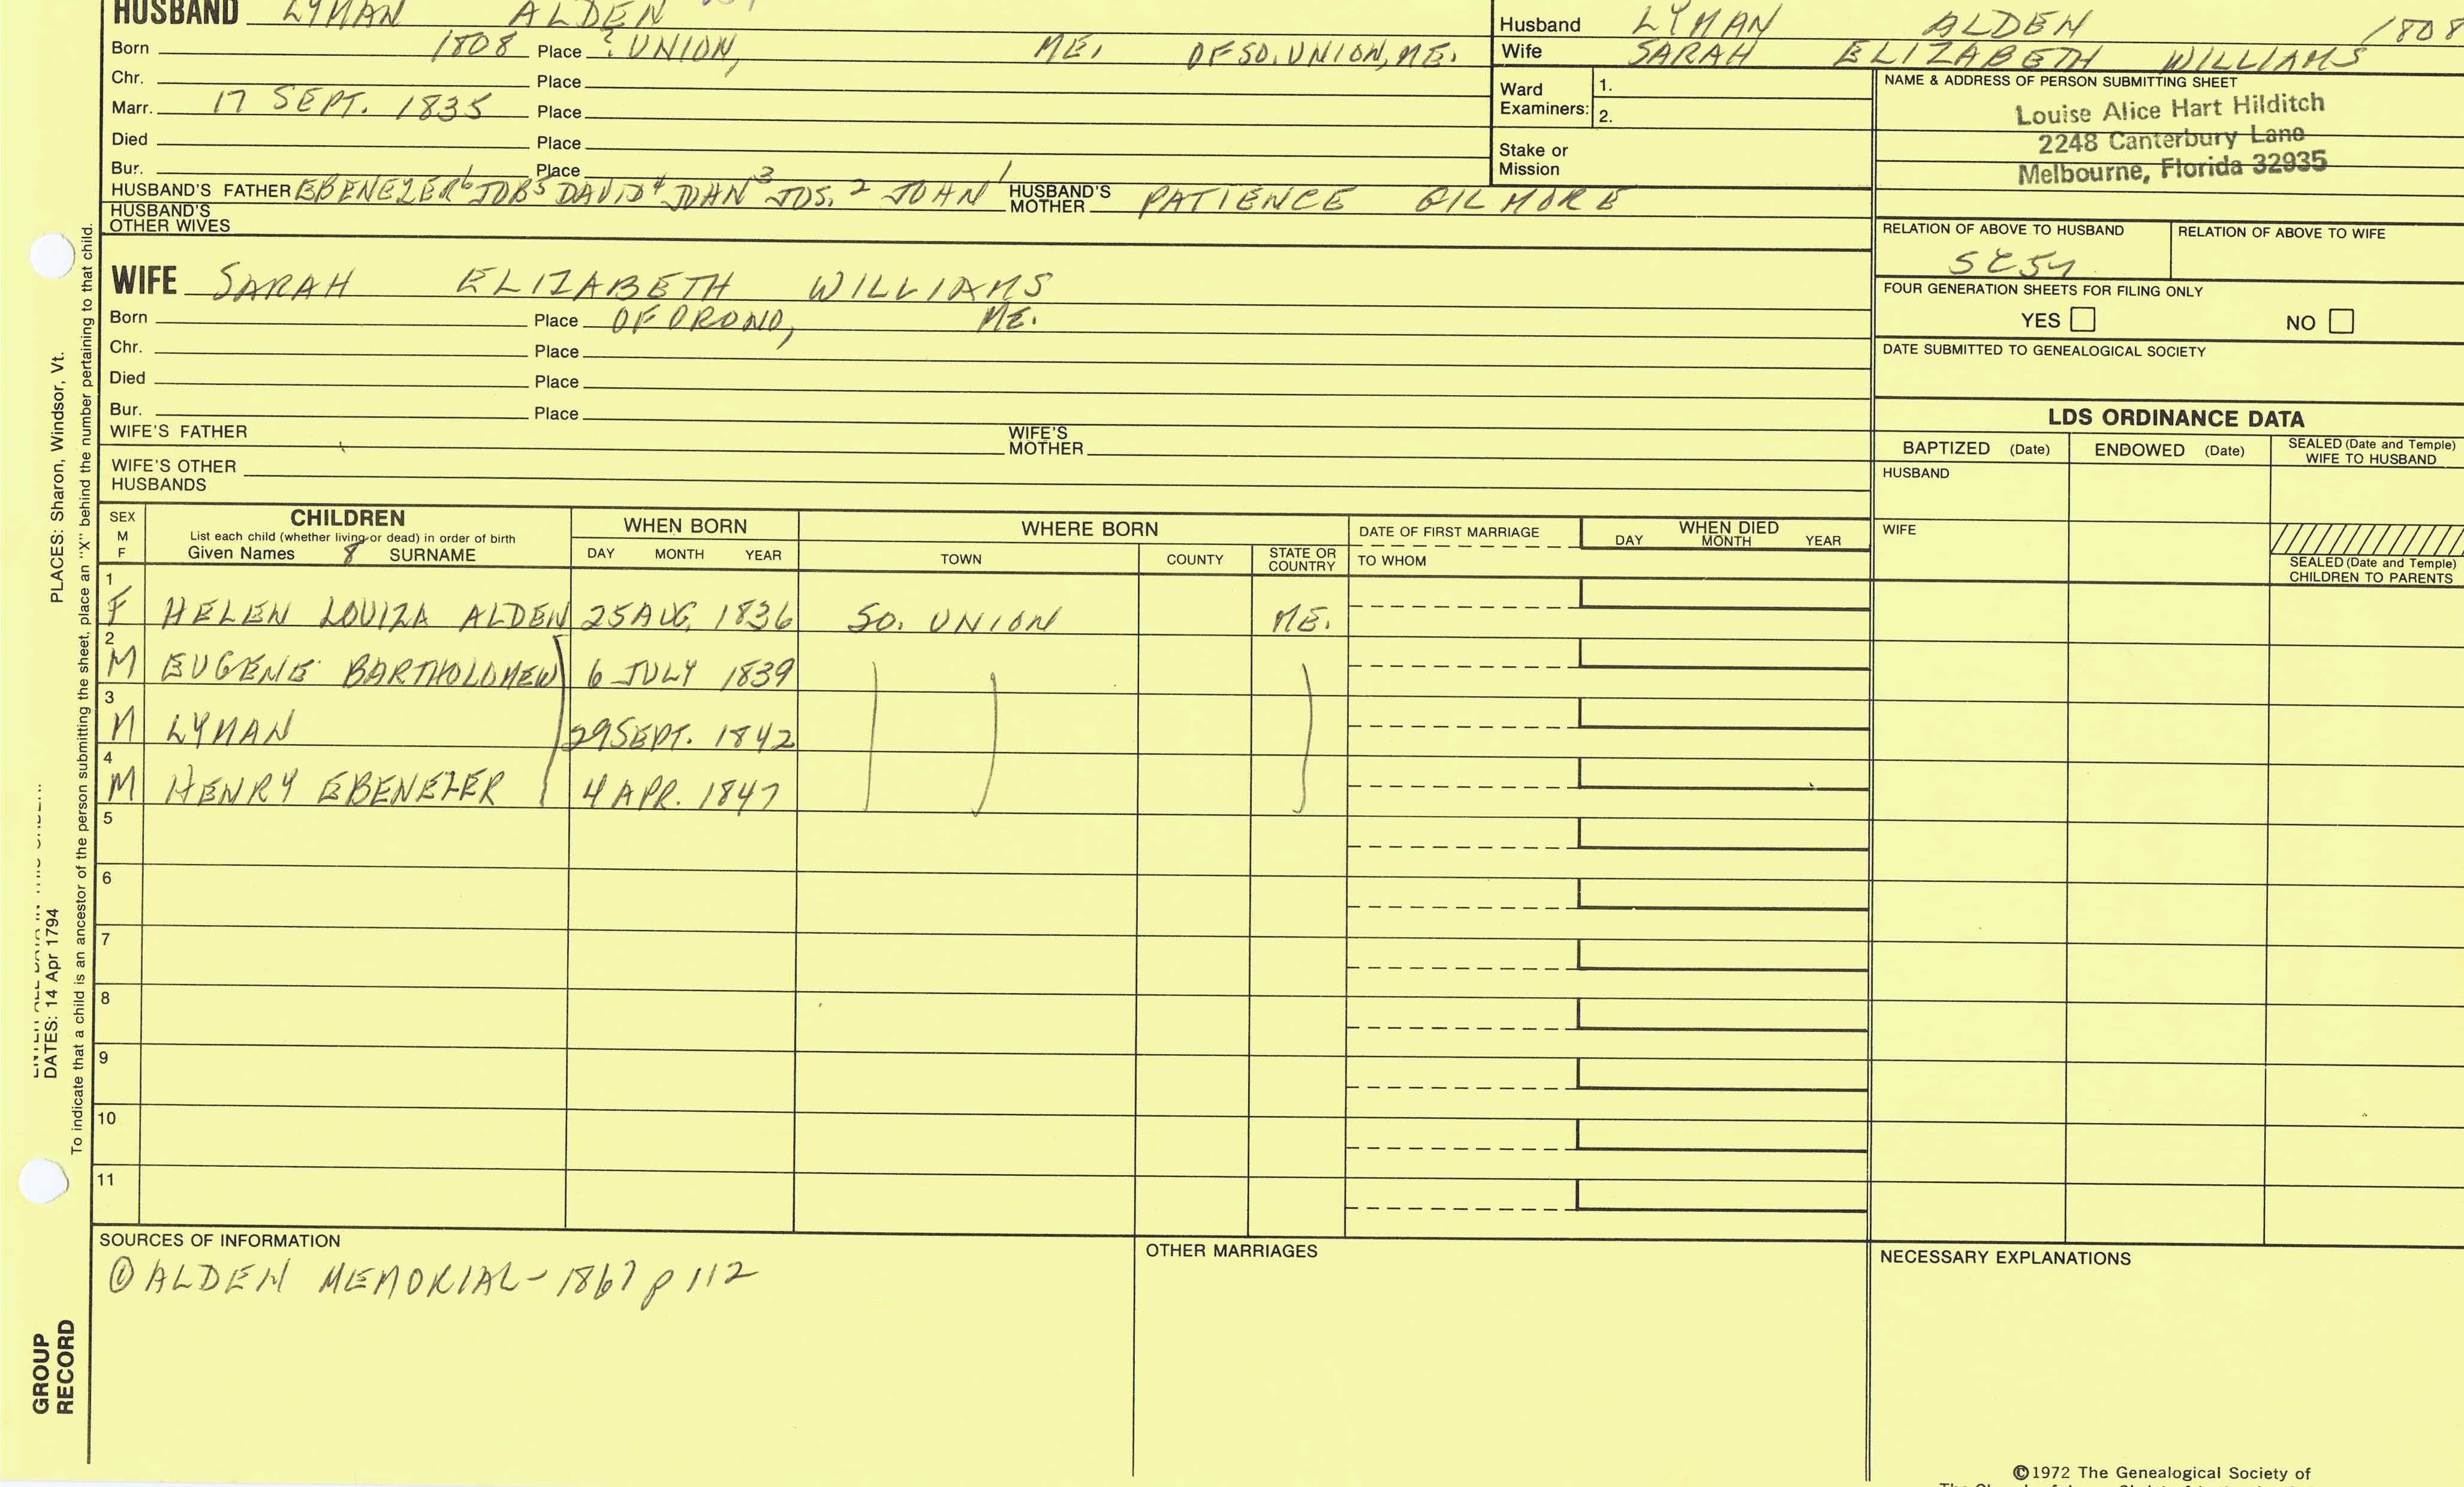 HUSBAND LYMAN ALDEN
Born 1808 Place ? UNION, ME. OF SO. UNION, ME.
Chr. Place
Marr. 17 SEPT. 1835 Place
Died Place
Bur. Place
HUSBAND'S FATHER EBENEZER6 JOB5 DAVID4 JOHN3 JOS.2 JOHN1 HUSBAND'S MOTHER PATIENCE GILMORE
HUSBAND'S OTHER WIVES
Husband LYMAN ALDEN 1808
Wife SARAH ELIZABETH WILLIAMS
Ward Examiners: 1.
2.
Stake or Mission
NAME & ADDRESS OF PERSON SUBMITTING SHEET
Louise Alice Hart Hilditch
2248 Canterbury Lane
Melbourne, Florida 32935
RELATION OF ABOVE TO HUSBAND RELATION OF ABOVE TO WIFE
FOUR GENERATION SHEETS FOR FILING ONLY
YES NO
DATE SUBMITTED TO GENEALOGICAL SOCIETY
WIFE SARAH ELIZABETH WILLIAMS
Born Place OF ORONO, ME.
Chr. Place
Died Place
Bur. Place
WIFE'S FATHER WIFE'S MOTHER
WIFE'S OTHER HUSBANDS
LDS ORDINANCE DATA
BAPTIZED (Date) ENDOWED (Date) SEALED (Date and Temple) WIFE TO HUSBAND
HUSBAND
WIFE
SEALED (Date and Temple) CHILDREN TO PARENTS
SEX M F
CHILDREN
List each child (whether living or dead) in order of birth
Given Names 8 SURNAME
WHEN BORN
DAY MONTH YEAR
WHERE BORN
TOWN COUNTY STATE OR COUNTRY
DATE OF FIRST MARRIAGE
TO WHOM
WHEN DIED
DAY MONTH YEAR
1 F HELEN LOUIZA ALDEN 25 AUG. 1836 SO. UNION ME.
2 M EUGENE BARTHOLOMEW 6 JULY 1839
3 M LYMAN 29 SEPT. 1842
4 M HENRY EBENEZER 4 APR. 1847
5
6
7
8
9
10
11
SOURCES OF INFORMATION
① ALDEN MEMORIAL - 1867 p 112
OTHER MARRIAGES
NECESSARY EXPLANATIONS
©1972 The Genealogical Society of
PLACES: Sharon, Windsor, Vt.
DATES: 14 Apr 1794
To indicate that a child is an ancestor of the person submitting the sheet, place an "X" behind the number pertaining to that child.
GROUP
RECORD